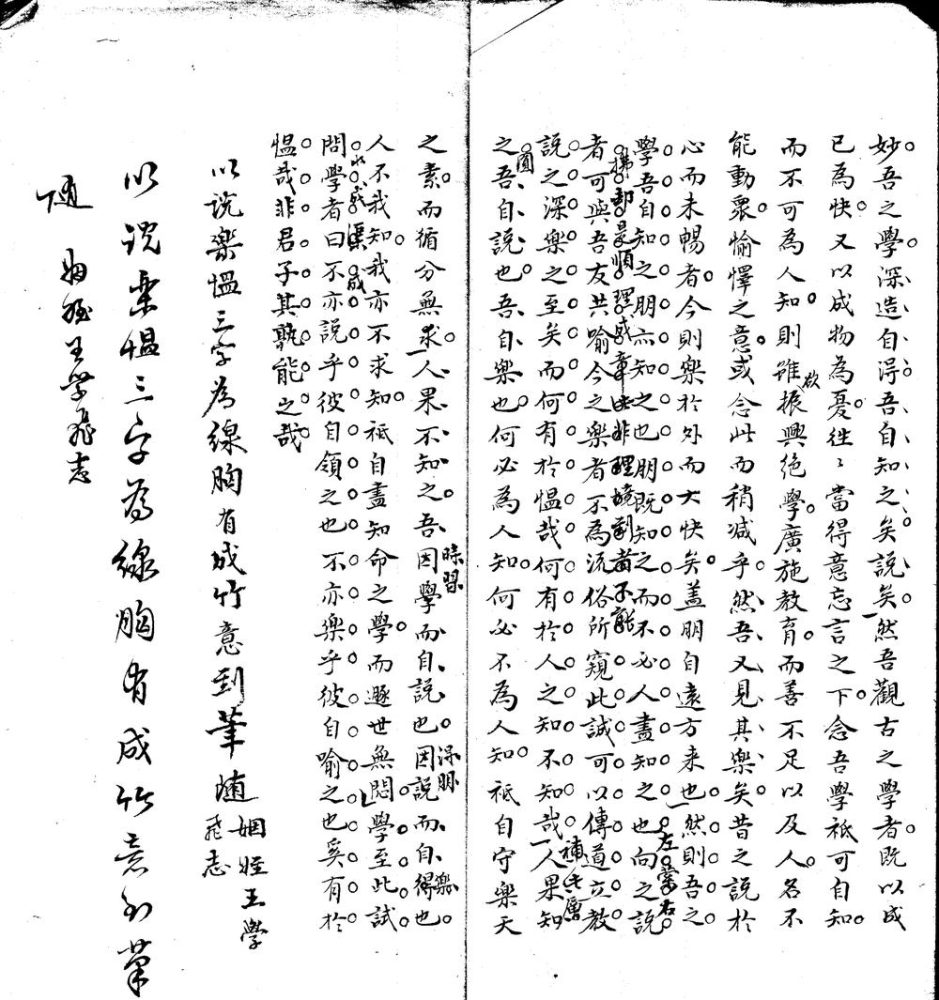 妙吾之學深造自得吾自知之矣說矣然吾觀古之學者既以成
已為快又以成物為憂往〻當得意忘言之下念吾學祇可自知
而不可為人知則雖欲振興絶學廣施教育而善不足以及人名不
能動衆愉懌之意或念此而稍減乎然吾又見其樂矣昔之說於
心而未暢者今則樂於外而大快矣盖朋自遠方来也然則吾之
學吾自知之朋亦知之也朋既知之而不必人盡知之也向之說
左掌右
者可與吾友共喻今之樂者不為流俗所窺此誠可以傳道立教
說之深樂之至矣而何有於愠哉何有於人之知不知哉人果知
補此層
之吾自說也吾自樂也何必為人知何必不為人知祇自守樂天
圓
之素而循分無求人果不知之吾因學而自說也因說而自得也
時習
得朋
樂
人不我知我亦不求知祇自盡知命之學而遯世無悶學至此試
問學者曰不亦說乎彼自領之也不亦樂乎彼自喻之也奚有於
愠哉非君子其孰能之哉
以說樂愠三字為線胸有成竹意到筆随
姻姪王學
飛志
以說樂愠三字為線胸有成竹意到筆
随
姻姪王學飛志